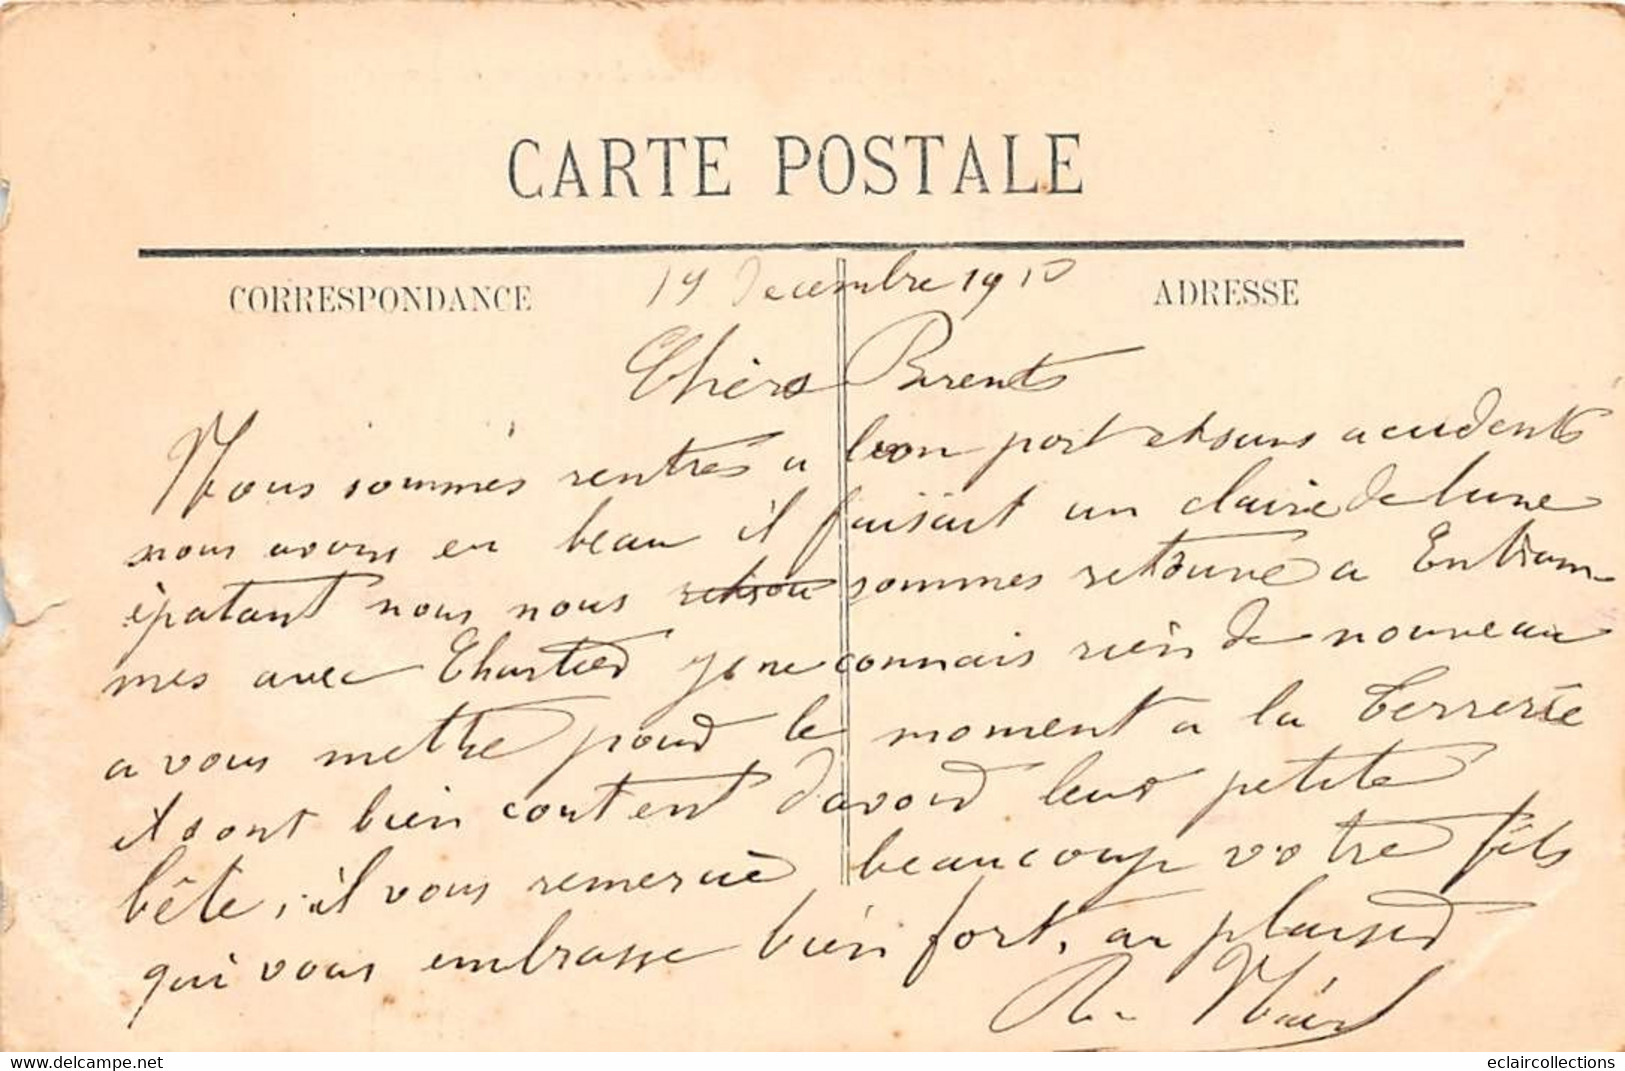 CARTE POSTALE
CORRESPONDANCE
ADRESSE
19 Decembre 1910
Chers Parents
Nous sommés rentrés a bon port et sans accidents
nous avons eu beau il faisait un claire de lune
épatant nous nous retrou sommes retourné a Entram-
mes avec Chartier je ne connais rien de nouveau
a vous mettre pour le moment a la Verrerie
il sont bien content d'avoir leur petite
bête, il vous remercie beaucoup votre fils
qui vous embrasse bien fort, au plaisir
delcampe.net
eclaircollections